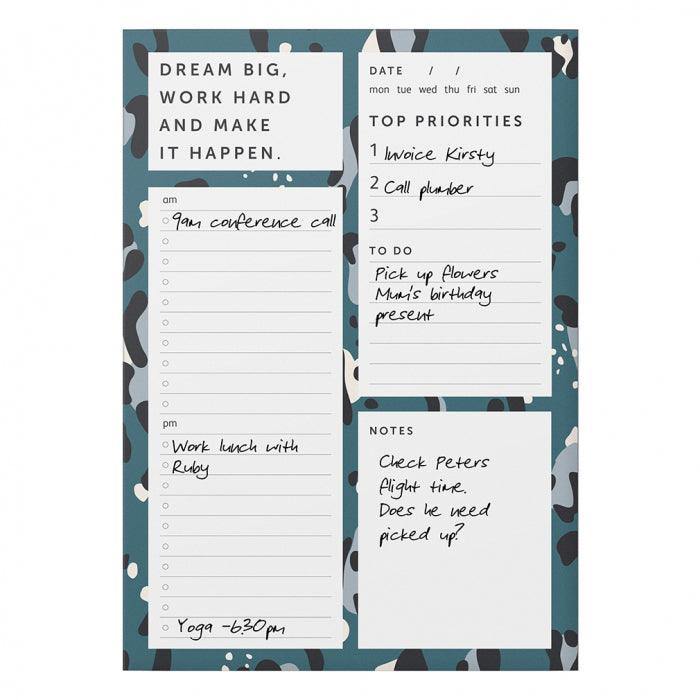 DREAM BIG,
WORK HARD
AND MAKE
IT HAPPEN.
am
9am conference call
pm
Work lunch with
Ruby
Yoga - 6.30pm
DATE / /
mon tue wed thu fri sat sun
TOP PRIORITIES
1 Invoice Kirsty
2 Call plumber
3
TO DO
Pick up flowers
Mum's birthday
present
NOTES
Check Peters
flight time.
Does he need
picked up?